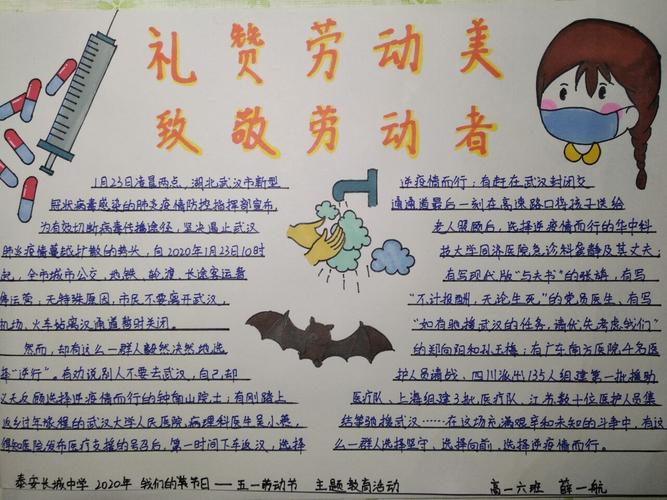 礼赞劳动美
致敬劳动者
1月23日凌晨两点，湖北武汉市新型
冠状病毒感染的肺炎疫情防控指挥部宣布，
为有效切断病毒传播途径，坚决遏止武汉
肺炎疫情蔓延扩散的势头，向2020年1月23日10时
起，全市城市公交、地铁、轮渡、长途客运暂
停运营，无特殊原因，市民不要离开武汉，
机场、火车站离汉通道暂时关闭。
然而，却有这么一群人毅然决然地选
择“逆行”。有劝说别人不要去武汉，自己却
义无反顾选择逆疫情而行的钟南山院士；有刚踏上
返乡过年旅程的武汉大学人民医院病理科医生吴小艳，
得知医院发布医疗支援的号召后，第一时间下车返汉，选择
逆疫情而行；有赶在武汉封闭交
通通道最后一刻在高速路口将孩子送给
老人照顾后，选择逆疫情而行的华中科
技大学同济医院急诊科蛮静及其丈夫；
有写现代版“与夫书”的张旃，有写
“不计报酬，无论生死”的党员医生、有写
“如有驰援武汉的任务，请优先考虑我们”
的郑向阳和孙玉梅；有广东南方医院，4名医
护人员请战、四川派出135人组建第一批援助
医疗队、上海组建3批医疗队、江苏数十位医护人员集
结等驰援武汉……在这场充满艰辛和未知的斗争中，有这
么一群人选择坚守、选择向前、选择逆疫情而行。
泰安长城中学 2020年 我们的节日——五一劳动节 主题教育活动 高一六班 薛一航